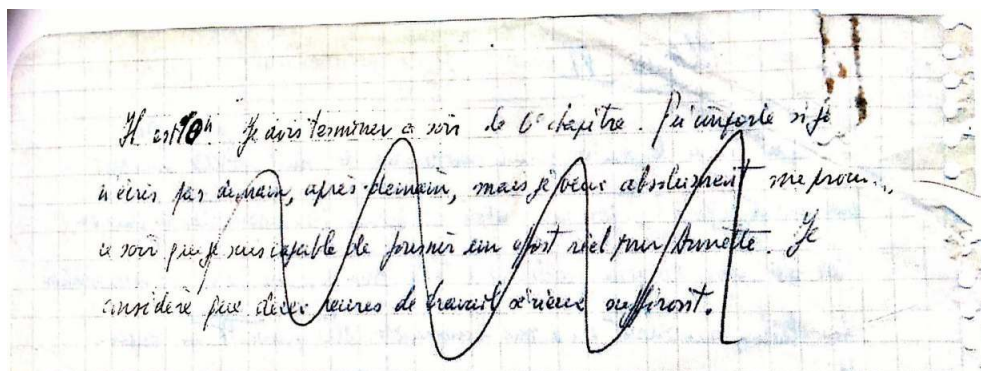 Il est 10h. Je dois terminer ce soir le 6e chapitre. Qu'importe si je
n'écris pas demain, après-demain, mais je veux absolument me prouv
ce soir que je suis capable de fournir un effort réel pour Annette. Je
considère que deux heures de travail sérieux suffiront.